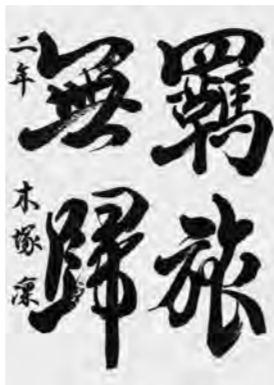 羈旅
無歸
二年 木塚 凜